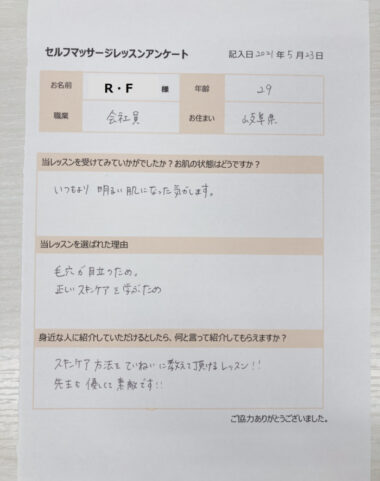 セルフマッサージレッスンアンケート 記入日 2021年 5月 23日
お名前 R・F 様 年齢 29
職業 会社員 お住まい 岐阜県
当レッスンを受けてみていかがでしたか？お肌の状態はどうですか？
いつもより 明るい肌になった気がします。
当レッスンを選ばれた理由
毛穴が目立つため。
正しいスキンケアを学ぶため
身近な人に紹介していただけるとしたら、何と言って紹介してもらえますか？
スキンケア方法をていねいに教えて頂けるレッスン!!
先生も優しくて素敵です!!
ご協力ありがとうございました。